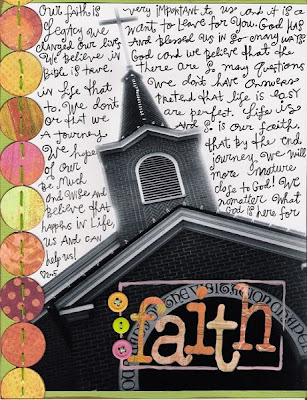 Our faith is very important to us and it is a
legacy we want to leave for you. God has
changed our lives and blessed us in so many ways.
We believe in God and we believe that the
Bible is true. There are so many questions
in life that we don't have answers
to. We don't pretend that life is easy
or that we are perfect. Life is
a journey and so is our faith.
We hope that by the end
of our journey, we will
be much more mature
and wise and close to God! We
believe that no matter what
happens in life, God is here for
us and can
help us!
THE VISITATION
faith